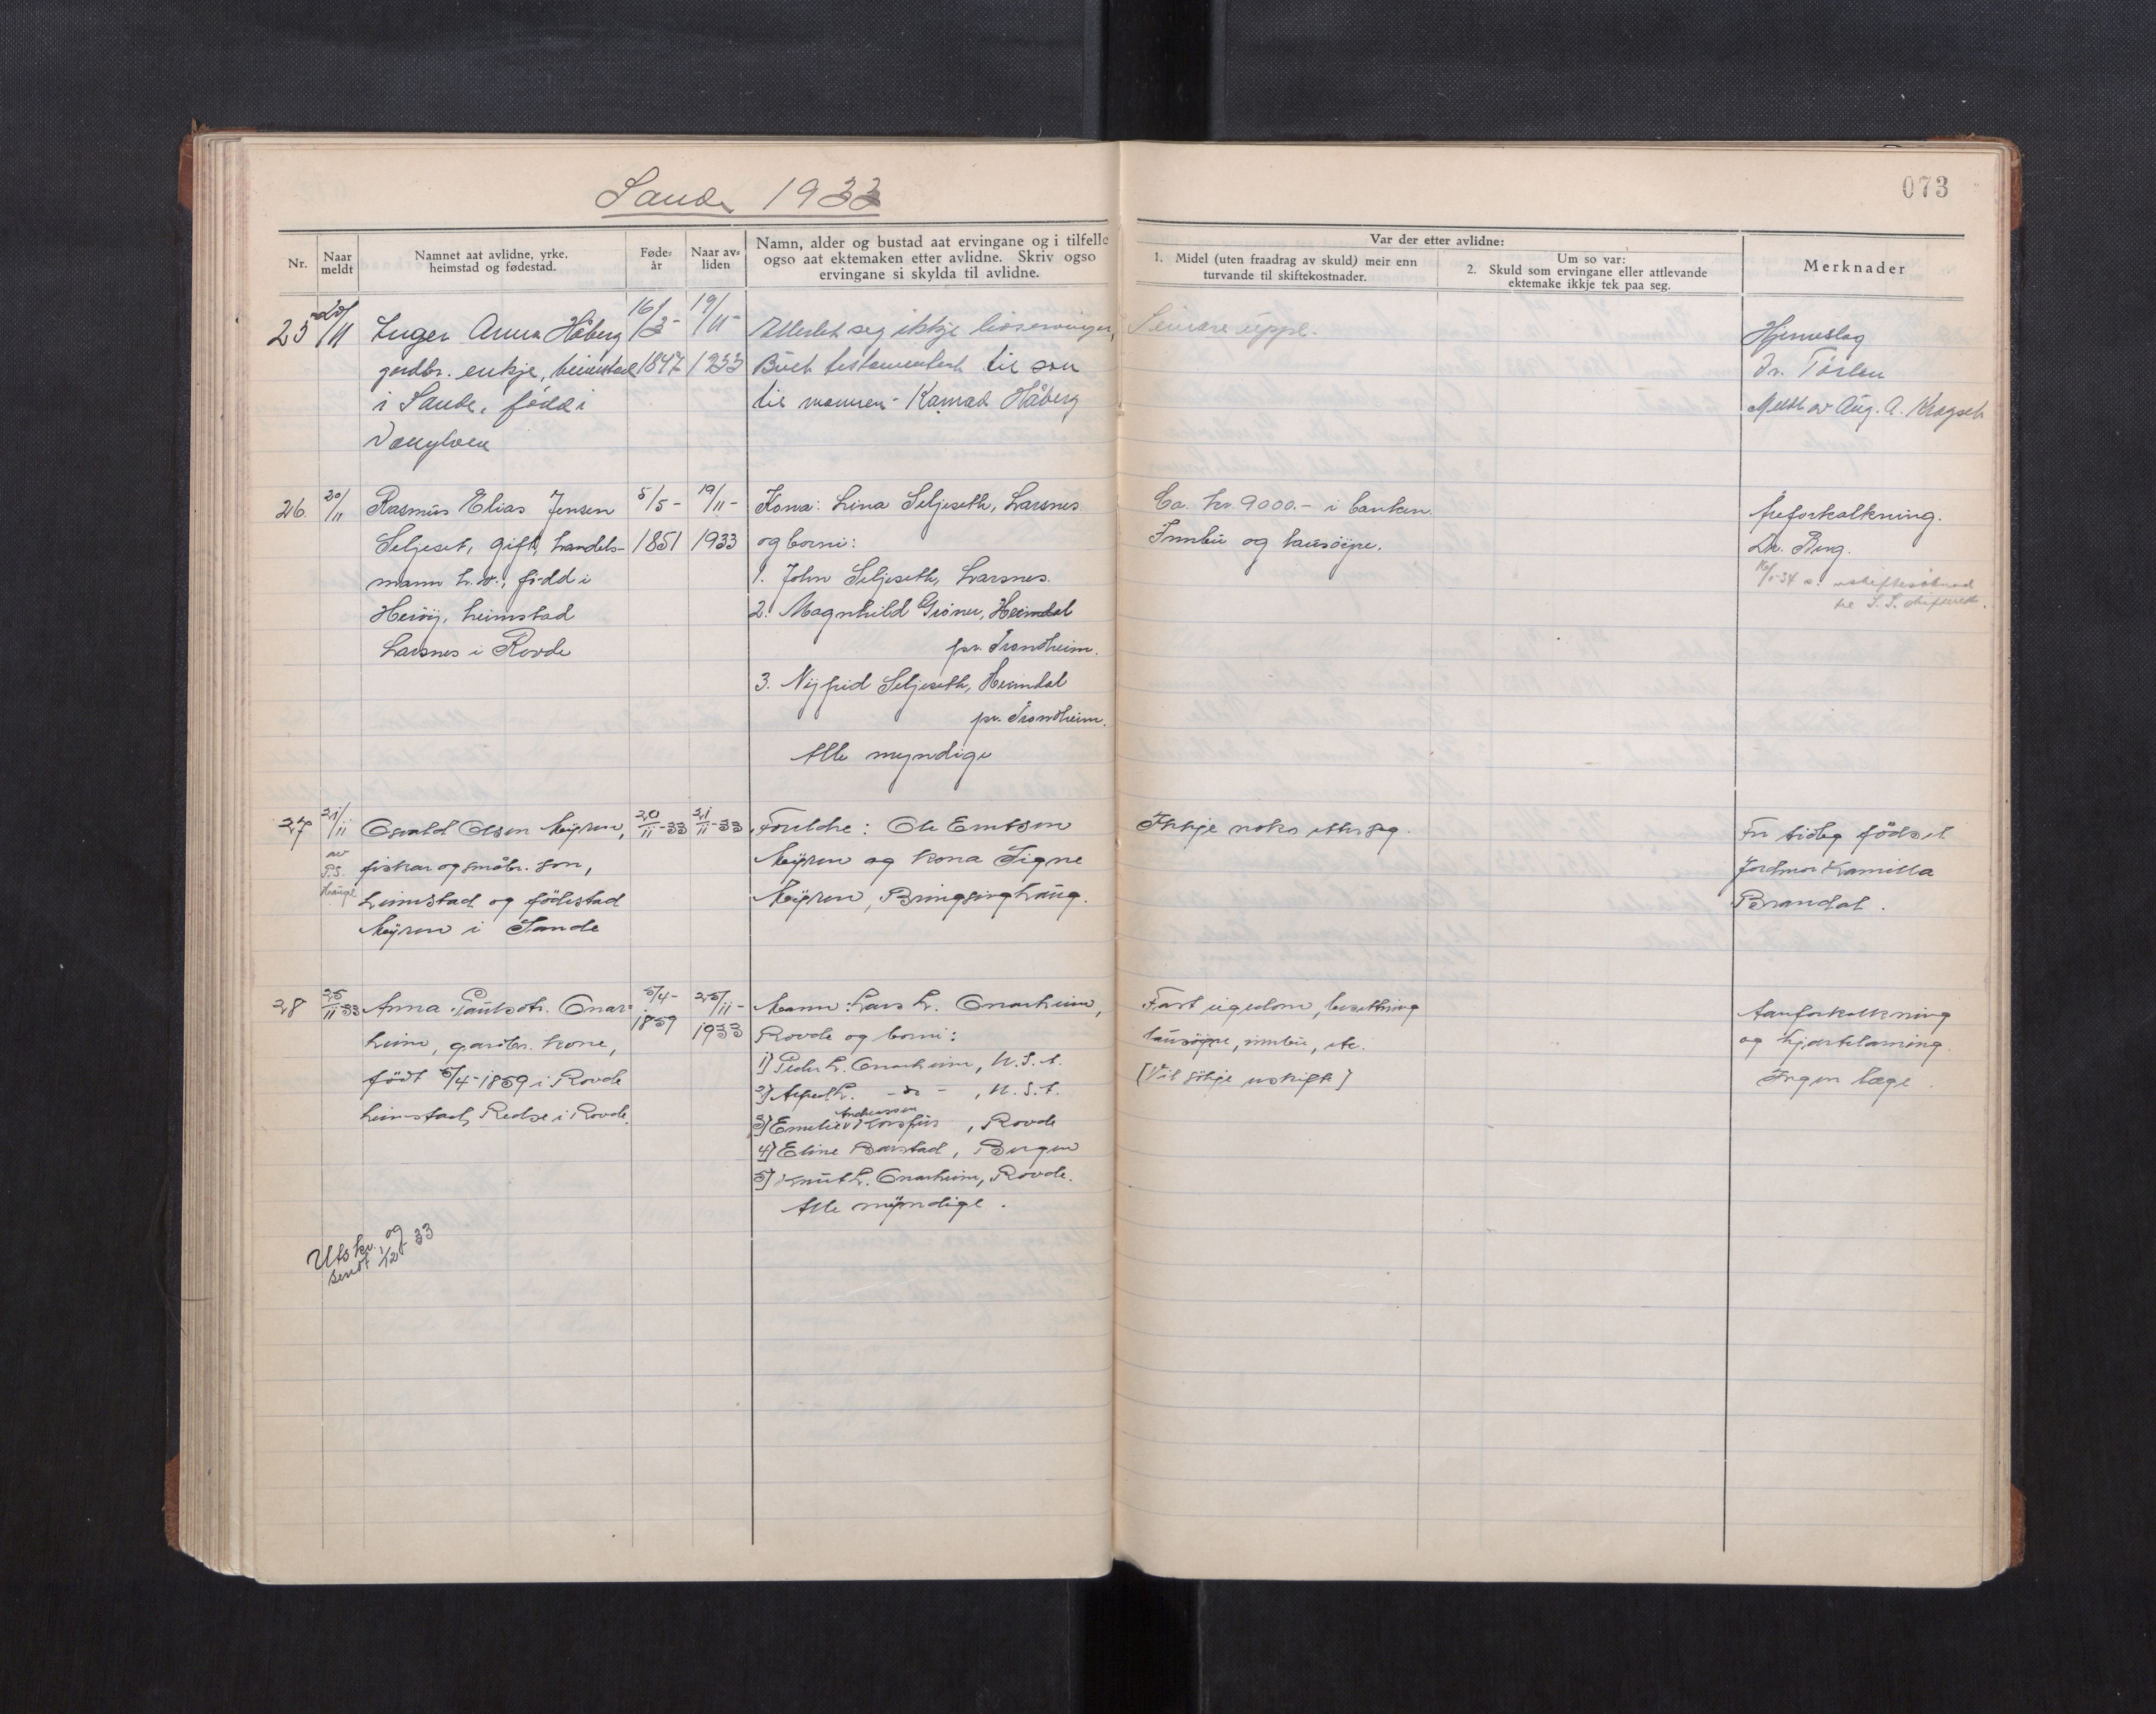 Sande 1933
073
Nr.
Naar meldt
Namnet aat avlidne, yrke,
heimstad og fødestad.
Føde-
år
Naar av-
liden
Namn, alder og bustad aat ervingane og i tilfelle
ogso aat ektemaken etter avlidne. Skriv ogso
ervingane si skylda til avlidne.
Var der etter avlidne:
1. Midel (uten fraadrag av skuld) meir enn
turvande til skiftekostnader.
Um so var:
2. Skuld som ervingane eller attlevande
ektemake ikkje tek paa seg.
Merknader
25 20/11 Inger Anna Håberg 16/3- 19/11- Etterlet seg ikkje livservinger, Seinare uppl. Hjerneslag
gardbr. enkje, heimstad 1847 1933 Buet testamentert til son Dr. Tørlen
i Sande, född i til mannen - Konrad Håberg Meldt av Aug. A. Kragset
Vanylven
26. 20/11 Rasmus Elias Jensen 5/5- 19/11- Kona: Lina Seljeseth, Larsnes. Ca. kr. 9000.- i banken. Åreforkalkning.
Seljeset, gift, handels- 1851 1933 og borni: Innbu og lausöyre. Dr. Berg.
mann h.v., född i 1. John Seljeseth, Larsnes. 16/1-34 s. uskiftesöknad
Heröy, heimstad 2. Magnhild Gröner, Heimdal til S. S. skifterett.
Larsnes i Rovde pr. Trondheim.
3. Nyfrid Seljeseth, Heimdal
pr. Trondheim.
Alle myndige
27 21/11 Osvald Olsen Möyren, 20/11-33 21/11-33 Foreldre: Ole Emtsen Ikkje noko etter seg. For tidleg födsel
av P.S. Hauge fiskar og småbr. son, Möyren og kona Signe Jordmor Kamilla
heimstad og födestad Möyren, Bringsinghaug. Brandal.
Möyren i Sande
28 25/11-33 Anna Paulsdtr. Onar- 5/4- 25/11- Mann: Lars L. Onarheim, Fast eigedom, besettning Aareforkalkning
heim, gardbr. kone, 1859 1933 Rovde og borni: lausöyre, innbu, etc. og hjertelaming.
födt 5/4-1859 i Rovde 1) Peder L. Onarheim, U.S.A. [Vil sökje uskifte] Ingen læge.
heimstad, Redse i Rovde. 2) Alfred L. -do- , U.S.A.
3) Emelie Andreassen Korsfur, Rovde
4) Eline Barstad, Bergen
5) Knut L. Onarheim, Rovde.
Alle myndige.
Utskr. og
sendt 1/12-33